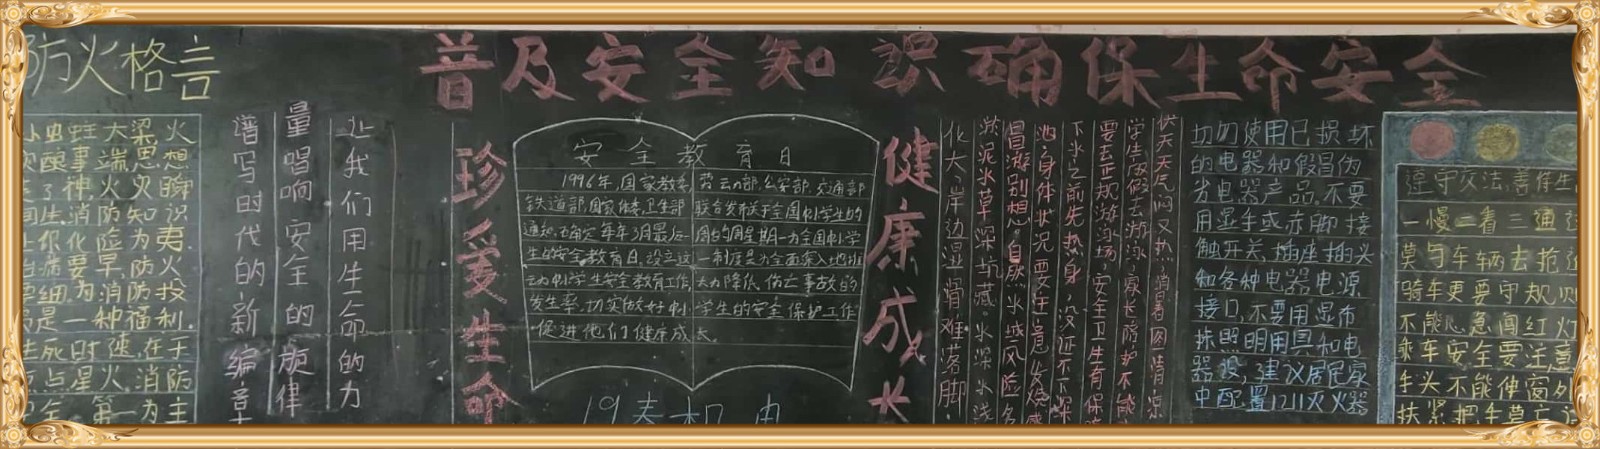 防火格言
小虫蛀大梁,火
酿事端思想
了神,火灾瞬
生.消防知识
你化险为夷.
病要早,防火
细.为消防投
是一种福利.
生死时速,在于
点星火,消防
全.第一为主
让我们用生命的力
量唱响安全的旋律
谱写时代的新编章
普及安全知识 确保生命安全
珍爱生命
安全教育日
1996年,国家教委,劳动部,公安部,交通部
铁道部,国家体委,卫生部 联合发布关于全国中小学生的
通知,确定每年3月最后一周的周星期一为全国中小学
生的安全教育日,设立这一制度是为全面深入地推
动中小学生安全教育工作,大力降低伤亡事故的
发生率,切实做好中小学生的安全保护工作
促进他们健康成长.
19春机电
健康成长
伏天天气闷又热,消暑图清凉
学生放假去游泳,家长防护不能
要去正规游泳场,安全卫生有保障
下水之前先热身,没还不下深
池,身体状况要注意,发烧感
冒游别想.自然水域风险多
淤泥水草深坑藏.水深水浅
化大,岸边湿滑难落脚.
切勿使用已损坏
的电器和假冒伪
劣电器产品.不要
用湿手或赤脚接
触开关,插座插头
和各种电器电源
接口,不要用湿布
抹照明用具和电
器设,建议居民家
中配置1211灭火器
遵守交法,善待生
一慢二看三通过
莫与车辆去抢道
骑车更要守规则
不能心急闯红灯
乘车安全要注意
车头不能伸窗外
扶紧把手莫忘记